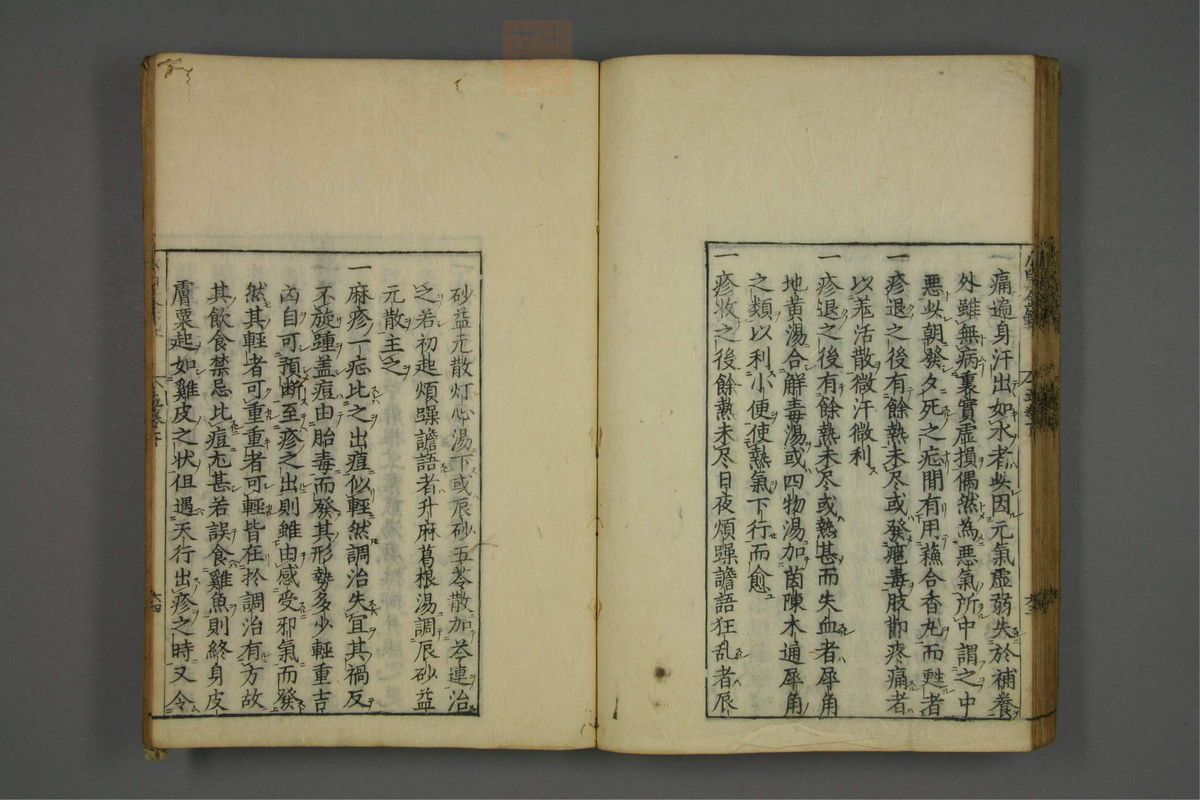 一痛遍身汗出如水者此因元氣虛弱失於補養
外雖無病裏實虛損偶然為惡氣所中謂之中
惡此朝發夕死之疾間有用蘓合香丸而甦者
一疹退之後有餘熱未尽或發瘡毒肢節疼痛者
以羗活散微汗微利
一疹退之後有餘熱未尽或熱甚而失血者犀角
地黃湯合解毒湯或四物湯加茵陳木通犀角
之類以利小便使熱氣下行而愈
一疹收之後餘熱未尽日夜煩躁譫語狂乱者辰
砂益元散灯心湯下或辰砂五苓散加芩連治
之若初起煩躁譫語者升麻葛根湯調辰砂益
元散主之
一麻疹一症比之出痘似輕然調治失宜其禍反
不旋踵盖痘由胎毒而發其形勢多少輕重吉
凶自可預断至疹之出則雖由感受邪氣而發
然其輕者可重重者可輕皆在於調治有方故
其飲食禁忌比痘尤甚若誤食雞魚則終身皮
膚粟起如雞皮之狀但遇天行出疹之時又令